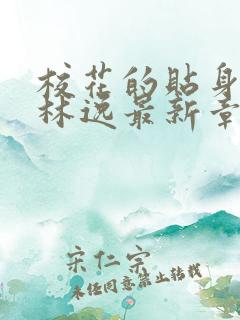 校花的贴身
林逸最新章
宋仁宗
未经同意禁止转载